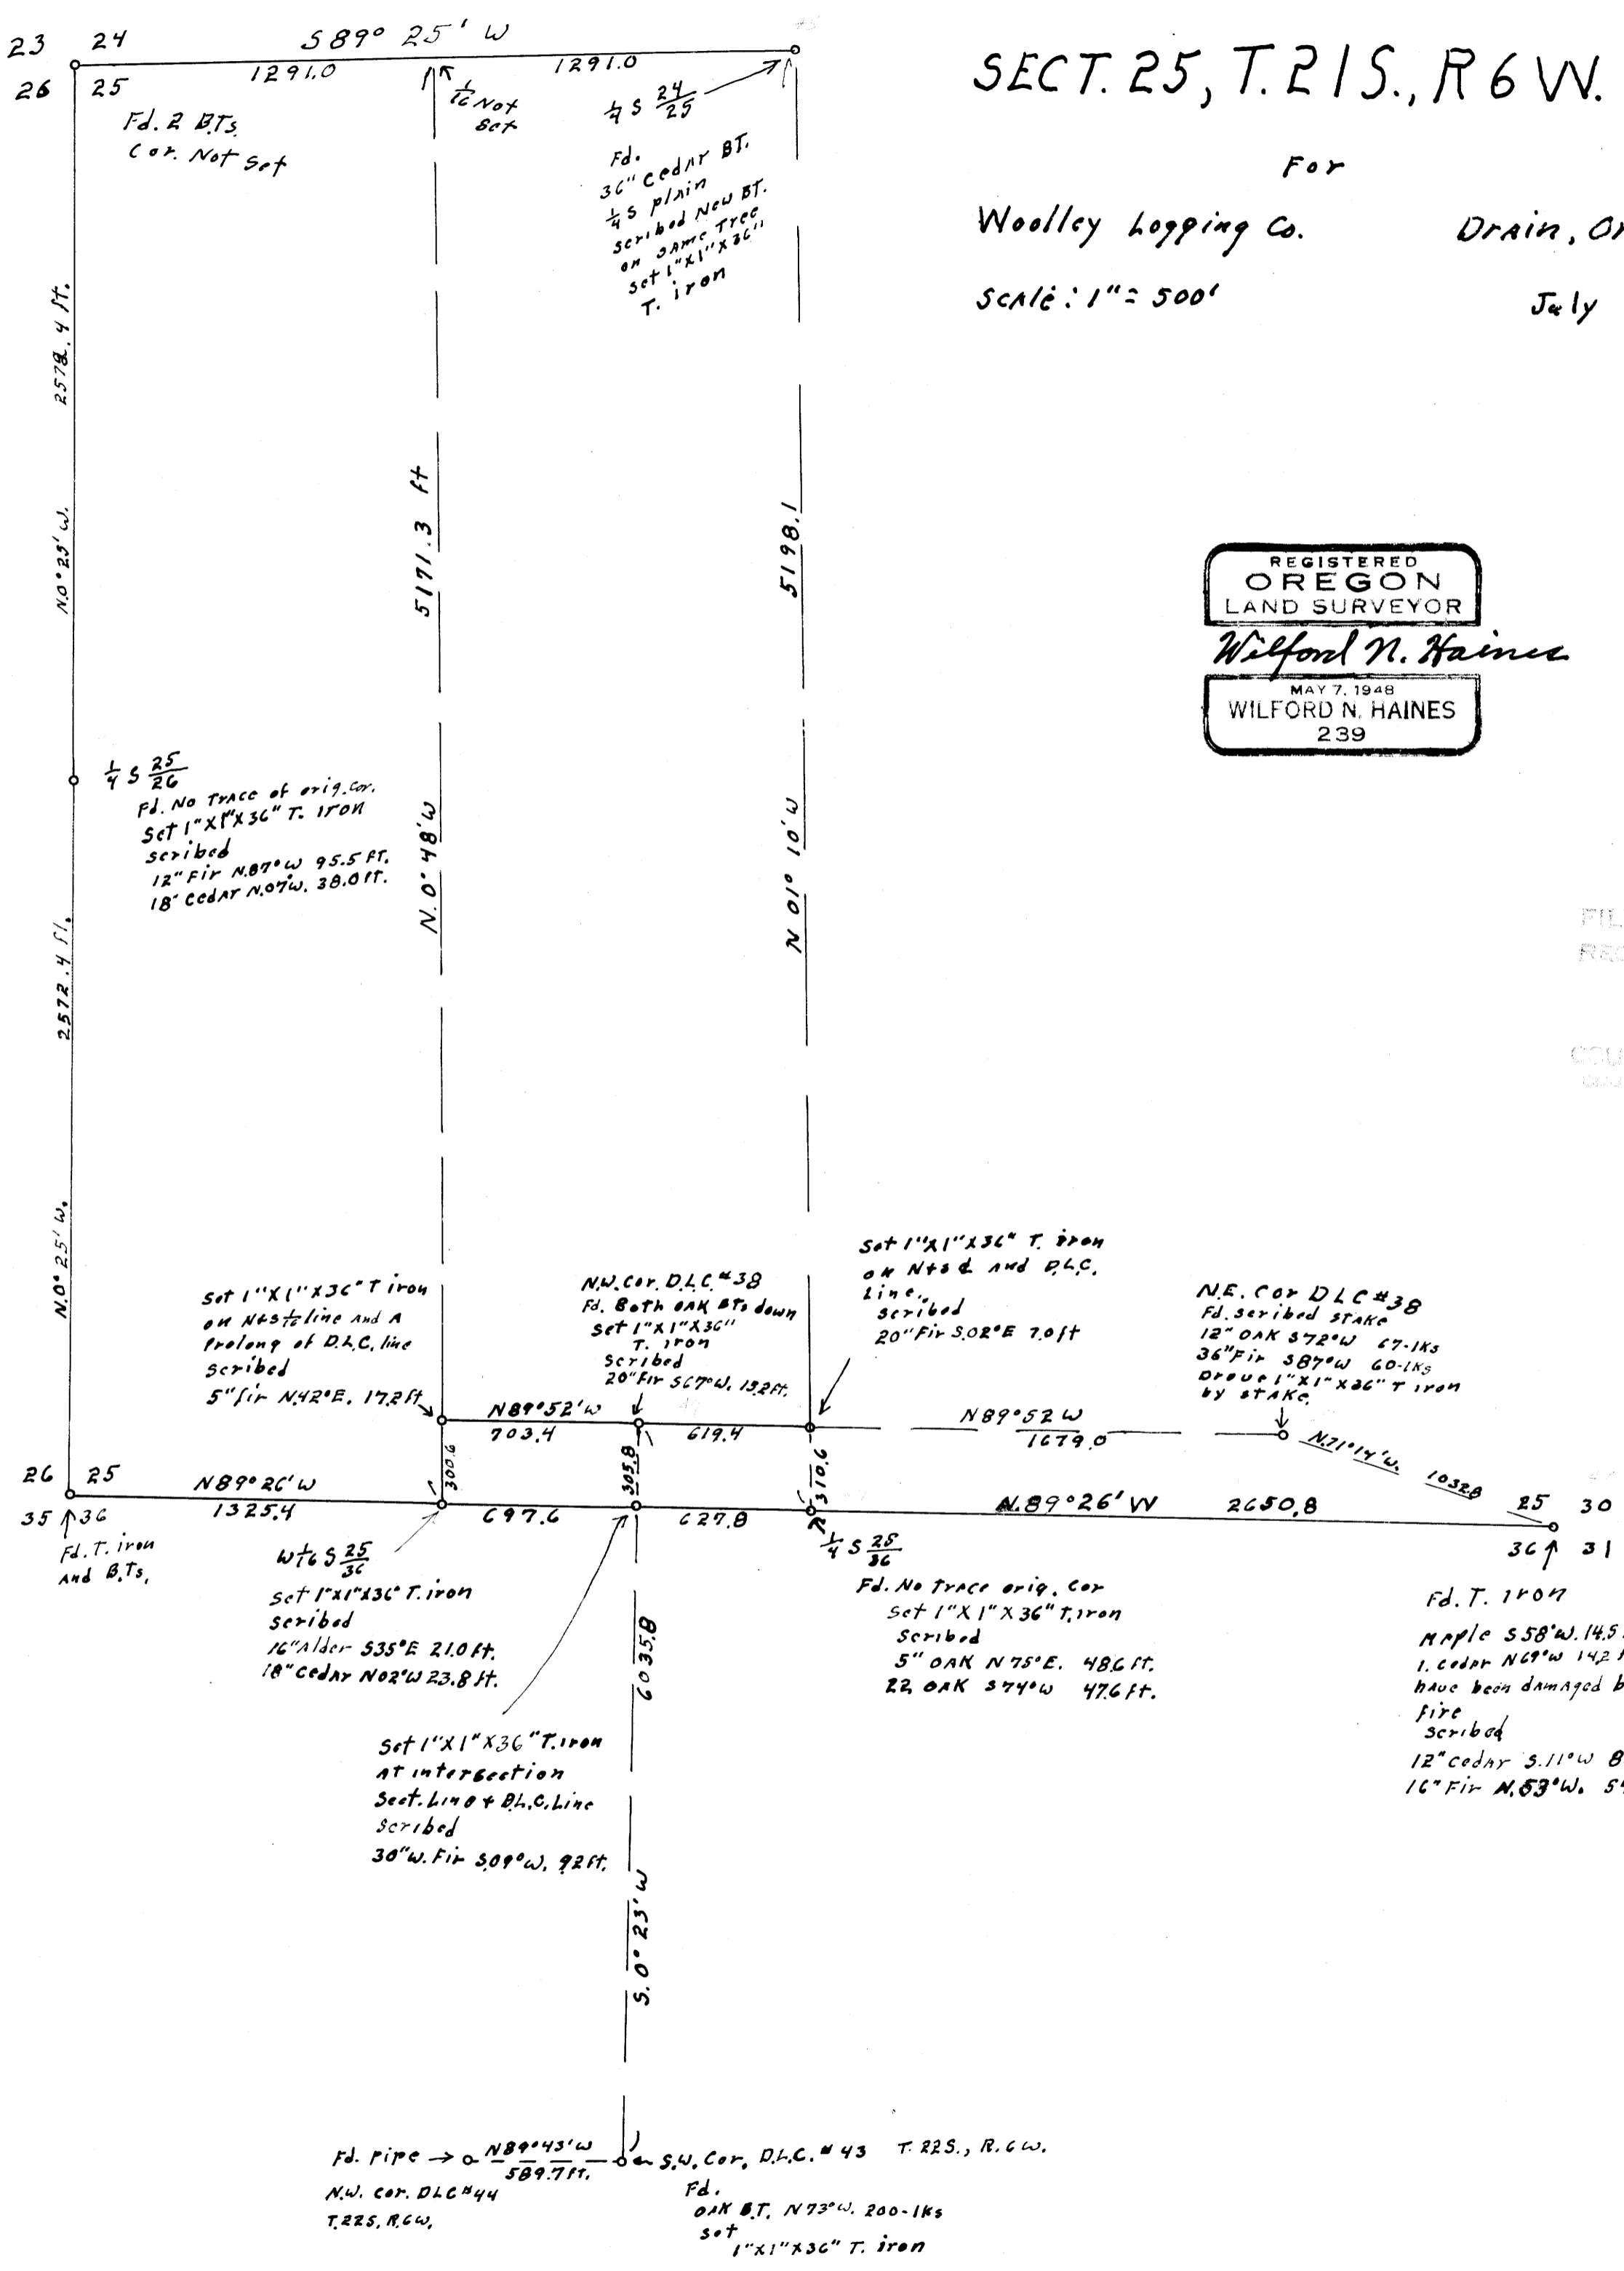 SECT. 25, T. 21S., R 6 W.
For
Woolley Logging Co.
Drain, Or
Scale: 1" = 500'
July
23 24
26 25
S 89° 25' W
1291.0
1291.0
Fd. 2 B.Ts.
Cor. Not Set
1/16 Not
Set
1/4 S 24/25
Fd.
36" Cedar BT.
1/4 S plain
scribed New BT.
on same Tree
set 1"x1"x36"
T. iron
N.0° 25' W.
5171.3 ft
5198.1
REGISTERED
OREGON
LAND SURVEYOR
Wilford N. Haines
MAY 7, 1948
WILFORD N. HAINES
239
1/4 S 25/26
Fd. No Trace of orig. cor.
Set 1"x1"x36" T. iron
scribed
12" Fir N.87°W 95.5 ft.
18" Cedar N.07°W. 38.0 ft.
N.0° 48' W
N 01° 10' W
2572.4 ft.
N.0° 25' W.
Set 1"x1"x36" T iron
on N+S 1/16 line and A
Prolong of D.L.C. line
scribed
5" fir N.42°E. 17.2 ft
N.W. Cor. D.L.C. #38
Fd. Both OAK BTs down
Set 1"x1"x36"
T. iron
scribed
20" Fir S67°W. 15.2 ft.
Set 1"x1"x36" T. iron
on N+S ¢ and D.L.C.
Line.
scribed
20" Fir S.02°E 7.0 ft
N.E. Cor DLC #38
Fd. scribed STAKE
12" OAK S72°W 67-lks
36" Fir S87°W 60-lks
Drove 1"x1"x36" T iron
by STAKE.
N89°52'W
703.4
619.4
N89°52 W
1679.0
N.71°14'W.
1032.8
300.6
305.8
310.6
26 25
35 36
N89°26'W
1325.4
697.6
627.8
N.89°26' W
2650.8
25 30
36 31
Fd. T. iron
and B.Ts.
W 1/16 S 25/36
Set 1"x1"x36" T. iron
scribed
16" Alder S35°E 21.0 ft.
18" Cedar N02°W 23.8 ft.
1/4 S 25/36
Fd. No Trace orig. Cor
Set 1"x1"x36" T. iron
scribed
5" OAK N75°E. 48.6 ft.
22 OAK S74°W 47.6 ft.
Fd. T. iron
Maple S58°W. 14.5
1. Cedar N69°W 14.2 f
have been damaged b
fire
scribed
12" Cedar S.11°W 8
16" Fir N.53°W. 5
Set 1"x1"x36" T. iron
At intersection
Sect. Line + D.L.C. Line
scribed
30" W. Fir S.09°W. 9.2 ft.
6035.8
S. 0° 23' W
Fd. Pipe
N89°43'W
589.7 ft.
N.W. Cor. DLC #44
T.22S, R.6W.
S.W. Cor. D.L.C. #43 T. 22S., R. 6 W.
Fd.
OAK B.T. N73°W. 200-lks
set
1"x1"x36" T. iron